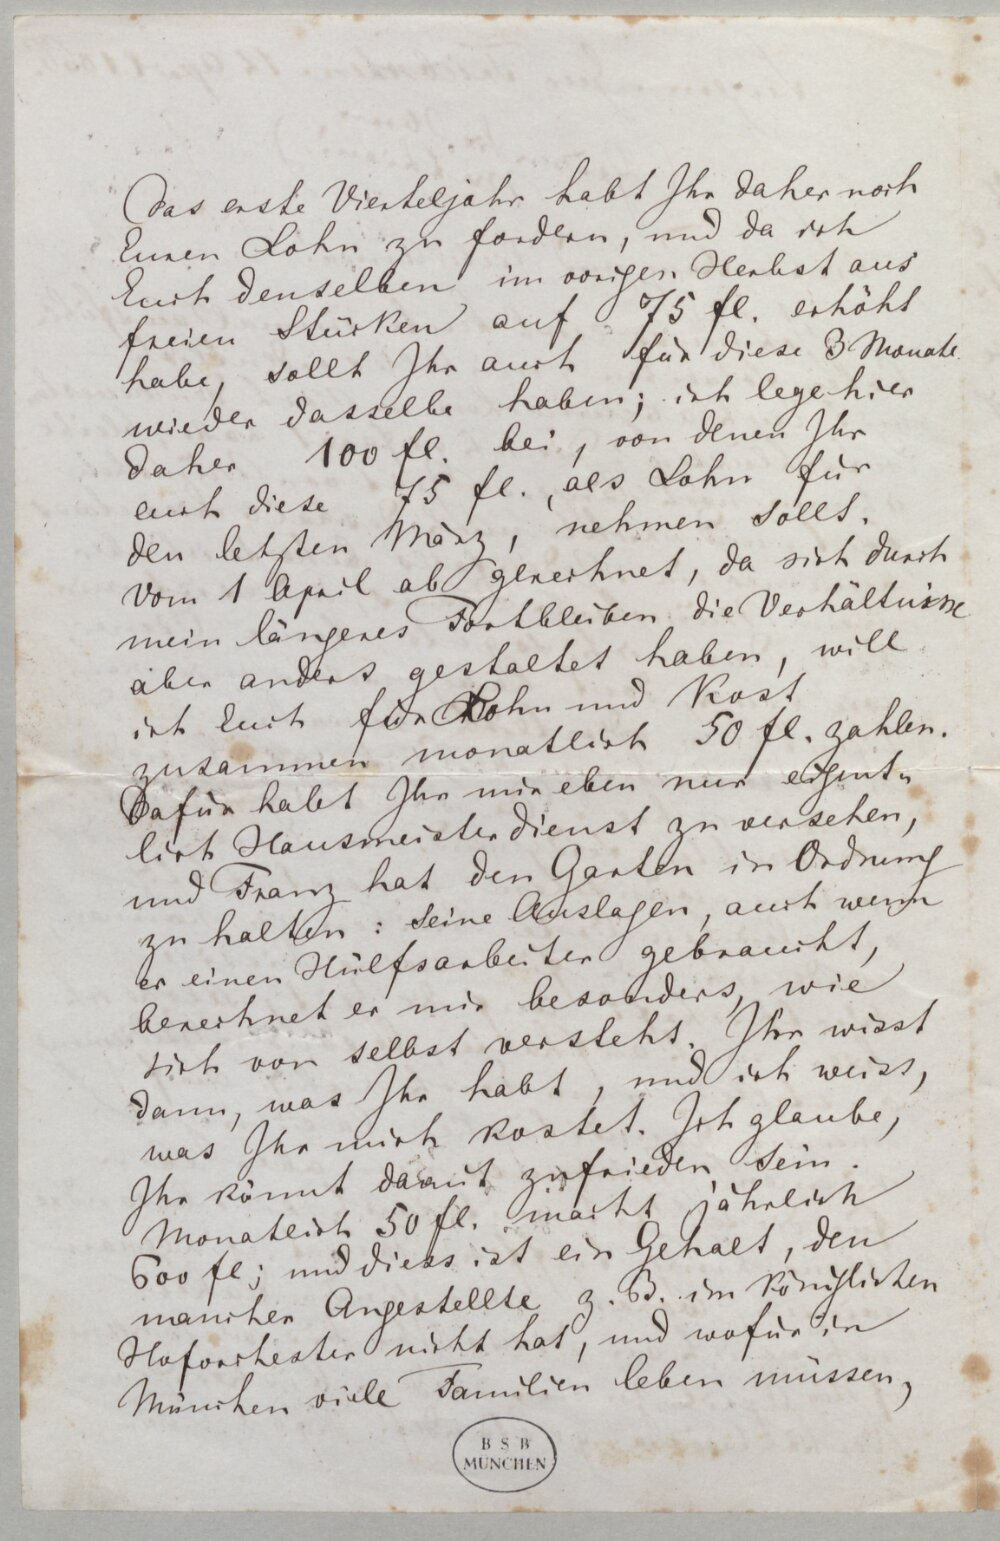 Das erste Vierteljahr habt Ihr daher noch
Euren Lohn zu fordern, und da ich
Euch denselben im vorigen Herbst aus
freien Stücken auf 75 fl. erhöht
habe, sollt Ihr auch für diese 3 Monate
wieder dasselbe haben; ich lege hier
daher 100 fl. bei, von denen Ihr
euch diese 75 fl., als Lohn für
den letzten März, nehmen sollt.
Vom 1 April ab gerechnet, da sich durch
mein längeres Fortbleiben die Verhältnisse
aber anders gestaltet haben, will
ich Euch für Lohn und Kost
zusammen monatlich 50 fl. zahlen.
Dafür habt Ihr mir eben nur eigent-
lich Hausmeisterdienst zu versehen,
und Franz hat den Garten in Ordnung
zu halten: seine Auslagen, auch wenn
er einen Hülfsarbeiter gebraucht,
berechnet er mir besonders, wie
sich von selbst versteht. Ihr wisst
dann, was Ihr habt, und ich weiss,
was Ihr mich kostet. Ich glaube,
Ihr könnt damit zufrieden sein.
Monatlich 50 fl. macht jährlich
600 fl; und diess ist ein Gehalt, den
mancher Angestellte z. B. im königlichen
Hoforchester nicht hat, und wofür in
München viele Familien leben müssen,
B S B
MÜNCHEN